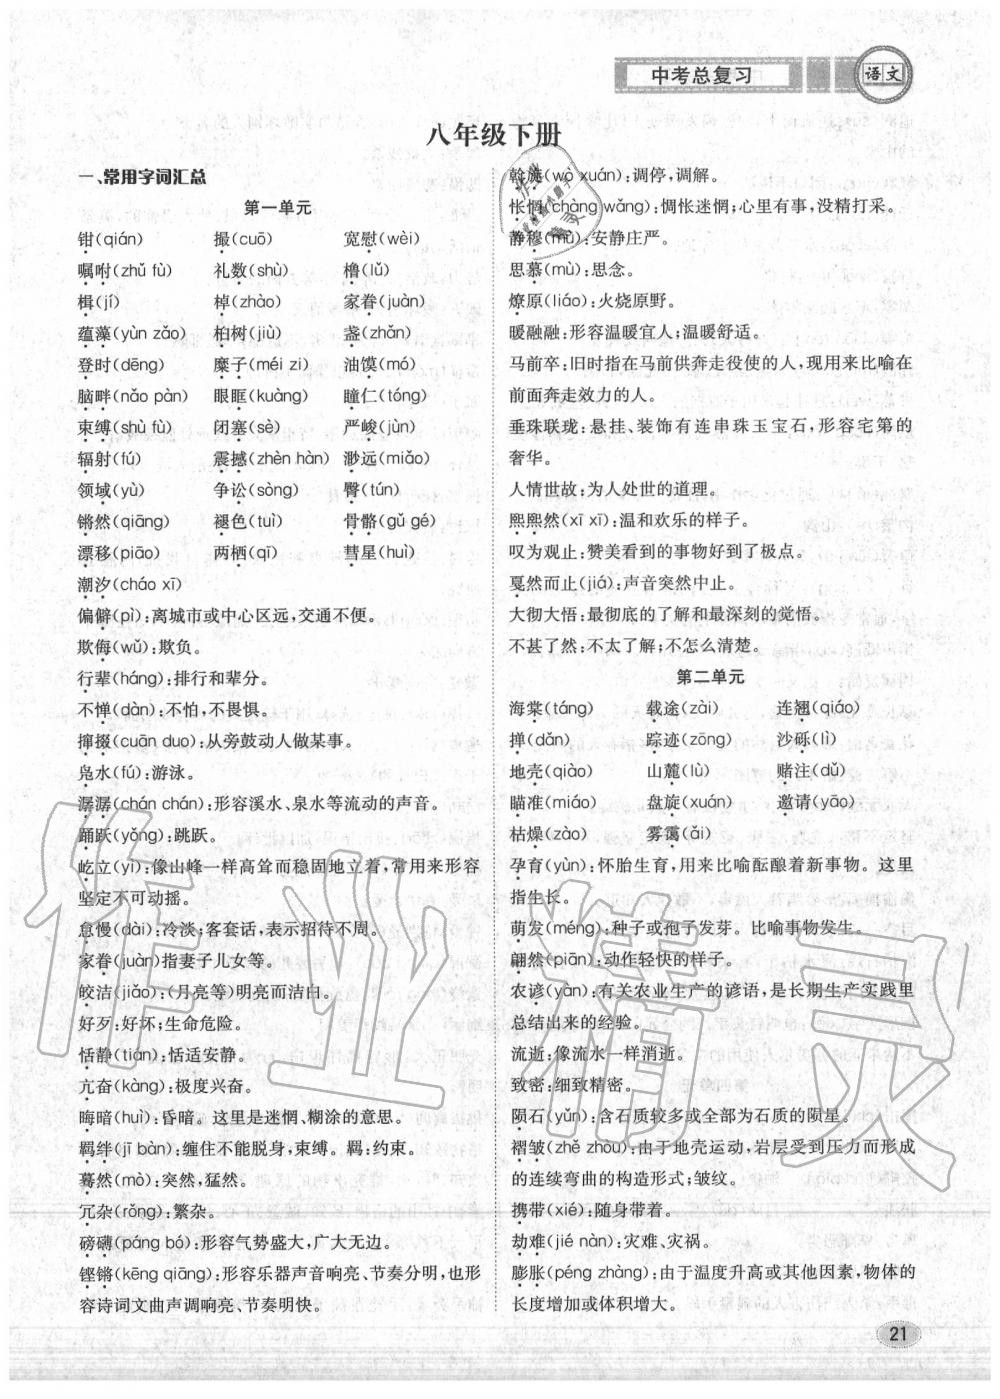 中考总复习
语文
八年级下册
一、常用字词汇总
第一单元
钳(qián) 撮(cuō) 宽慰(wèi)
嘱咐(zhǔ fù) 礼数(shù) 橹(lǔ)
楫(jí) 棹(zhào) 家眷(juàn)
蕴藻(yùn zǎo) 桕树(jiù) 盏(zhǎn)
登时(dēng) 糜子(méi zi) 油馍(mó)
脑畔(nǎo pàn) 眼眶(kuàng) 瞳仁(tóng)
束缚(shù fù) 闭塞(sè) 严峻(jùn)
辐射(fú) 震撼(zhèn hàn) 渺远(miǎo)
领域(yù) 争讼(sòng) 臀(tún)
锵然(qiāng) 褪色(tuì) 骨骼(gǔ gé)
漂移(piāo) 两栖(qī) 彗星(huì)
潮汐(cháo xī)
偏僻(pì):离城市或中心区远,交通不便。
欺侮(wǔ):欺负。
行辈(háng):排行和辈分。
不惮(dàn):不怕,不畏惧。
撺掇(cuān duo):从旁鼓动人做某事。
凫水(fú):游泳。
潺潺(chán chán):形容溪水、泉水等流动的声音。
踊跃(yǒng):跳跃。
屹立(yì):像山峰一样高耸而稳固地立着,常用来形容
坚定不可动摇。
怠慢(dài):冷淡;客套话,表示招待不周。
家眷(juàn)指妻子儿女等。
皎洁(jiǎo):(月亮等)明亮而洁白。
好歹:好坏;生命危险。
恬静(tián):恬适安静。
亢奋(kàng):极度兴奋。
晦暗(huì):昏暗。这里是迷惘、糊涂的意思。
羁绊(jī bàn):缠住不能脱身,束缚。羁:约束。
蓦然(mò):突然,猛然。
冗杂(rǒng):繁杂。
磅礴(páng bó):形容气势盛大,广大无边。
铿锵(kēng qiāng):形容乐器声音响亮、节奏分明,也形
容诗词文曲声调响亮、节奏明快。
斡旋(wò xuán):调停,调解。
怅惘(chàng wǎng):惆怅迷惘;心里有事,没精打采。
静穆(mù):安静庄严。
思慕(mù):思念。
燎原(liáo):火烧原野。
暖融融:形容温暖宜人;温暖舒适。
马前卒:旧时指在马前供奔走役使的人,现用来比喻在
前面奔走效力的人。
垂珠联珑:悬挂、装饰有连串珠玉宝石,形容宅第的
奢华。
人情世故:为人处世的道理。
熙熙然(xī xī):温和欢乐的样子。
叹为观止:赞美看到的事物好到了极点。
戛然而止(jiá):声音突然中止。
大彻大悟:最彻底的了解和最深刻的觉悟。
不甚了然:不太了解;不怎么清楚。
第二单元
海棠(táng) 载途(zài) 连翘(qiáo)
掸(dǎn) 踪迹(zōng) 沙砾(lì)
地壳(qiào) 山麓(lù) 赌注(dǔ)
瞄准(miáo) 盘旋(xuán) 邀请(yāo)
枯燥(zào) 雾霭(ǎi)
孕育(yùn):怀胎生育,用来比喻酝酿着新事物。这里
指生长。
萌发(méng):种子或孢子发芽。比喻事物发生。
翩然(piān):动作轻快的样子。
农谚(yàn):有关农业生产的谚语,是长期生产实践里
总结出来的经验。
流逝:像流水一样消逝。
致密:细致精密。
陨石(yǔn):含石质较多或全部为石质的陨星。
褶皱(zhě zhòu):由于地壳运动,岩层受到压力而形成
的连续弯曲的构造形式;皱纹。
携带(xié):随身带着。
劫难(jié nàn):灾难、灾祸。
膨胀(péng zhàng):由于温度升高或其他因素,物体的
长度增加或体积增大。
21
作业精灵